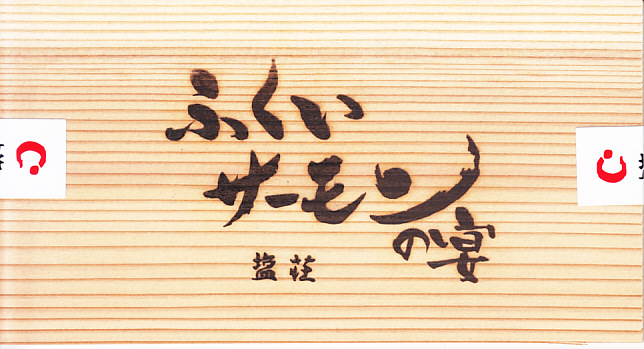 ふくい
サーモン
の宴
塩荘